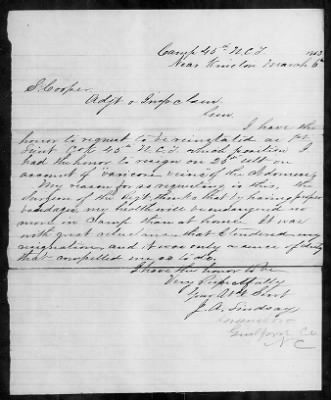 Camp 45th N.C.T.
Near Kinston March 6th
S. Cooper
Adjt & Insp
I have the
honor to request to be reinstated as
Lieut Co 45th N.C.T. which position I
had the honor to resign on 26th ult on
account of varicose veins of the abdomen
My reason for so requesting is this, the
Surgeon of the Regt thinks that by having proper
bandages my health will be
much in Camp than at home. It was
with great reluctance that I tendered my
resignation, and it was only a sense of duty
that compelled me so to do.
I have the honor to be
Very Respectfully
Your Obt Servt
J. A. Lindsay
Greensboro
Guilford Co
N C